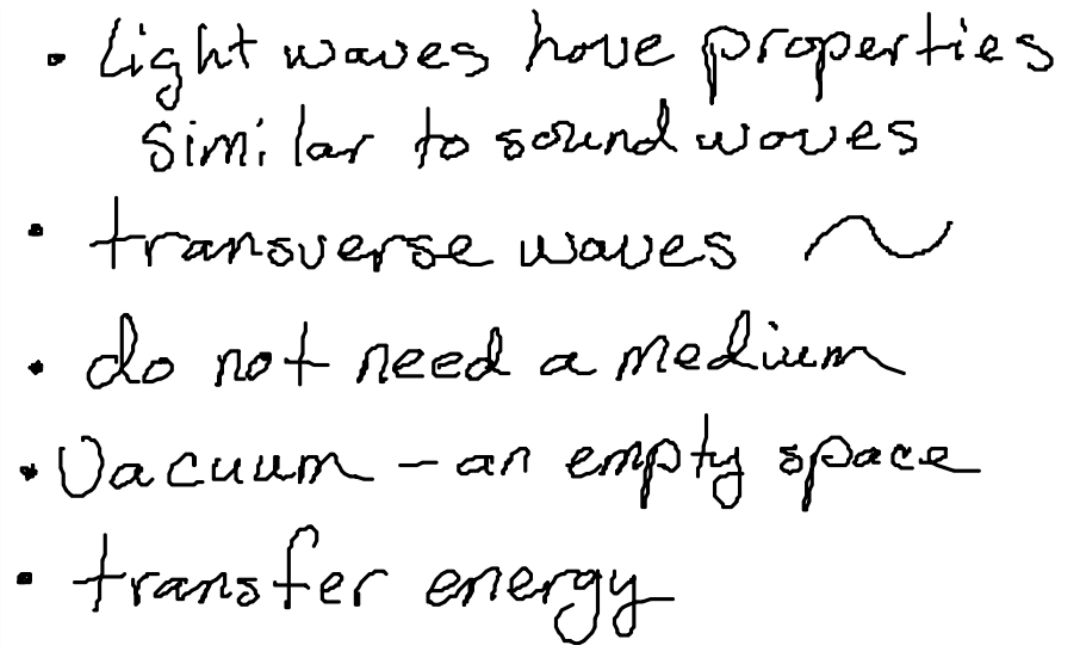 • Light waves have properties
similar to sound waves
• transverse waves
• do not need a medium
• Vacuum - an empty space
• transfer energy